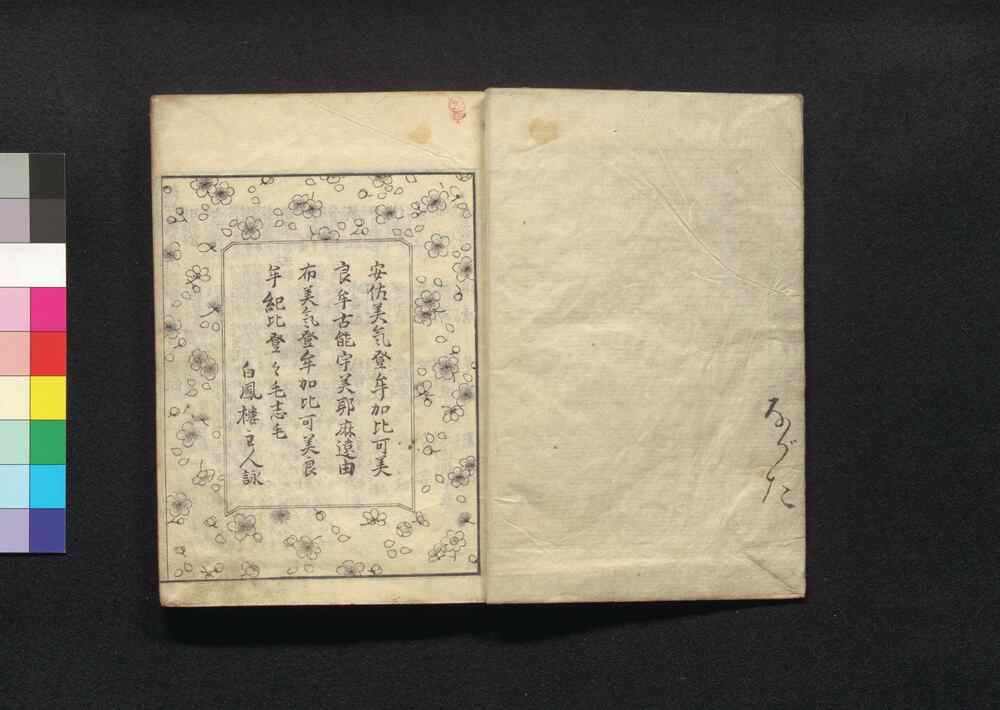 ながた
安佐美気登牟加比可美
良牟古能宇美耶麻遠由
布美気登牟加比可美良
牟紀比登々毛志毛
白鳳楼主人詠